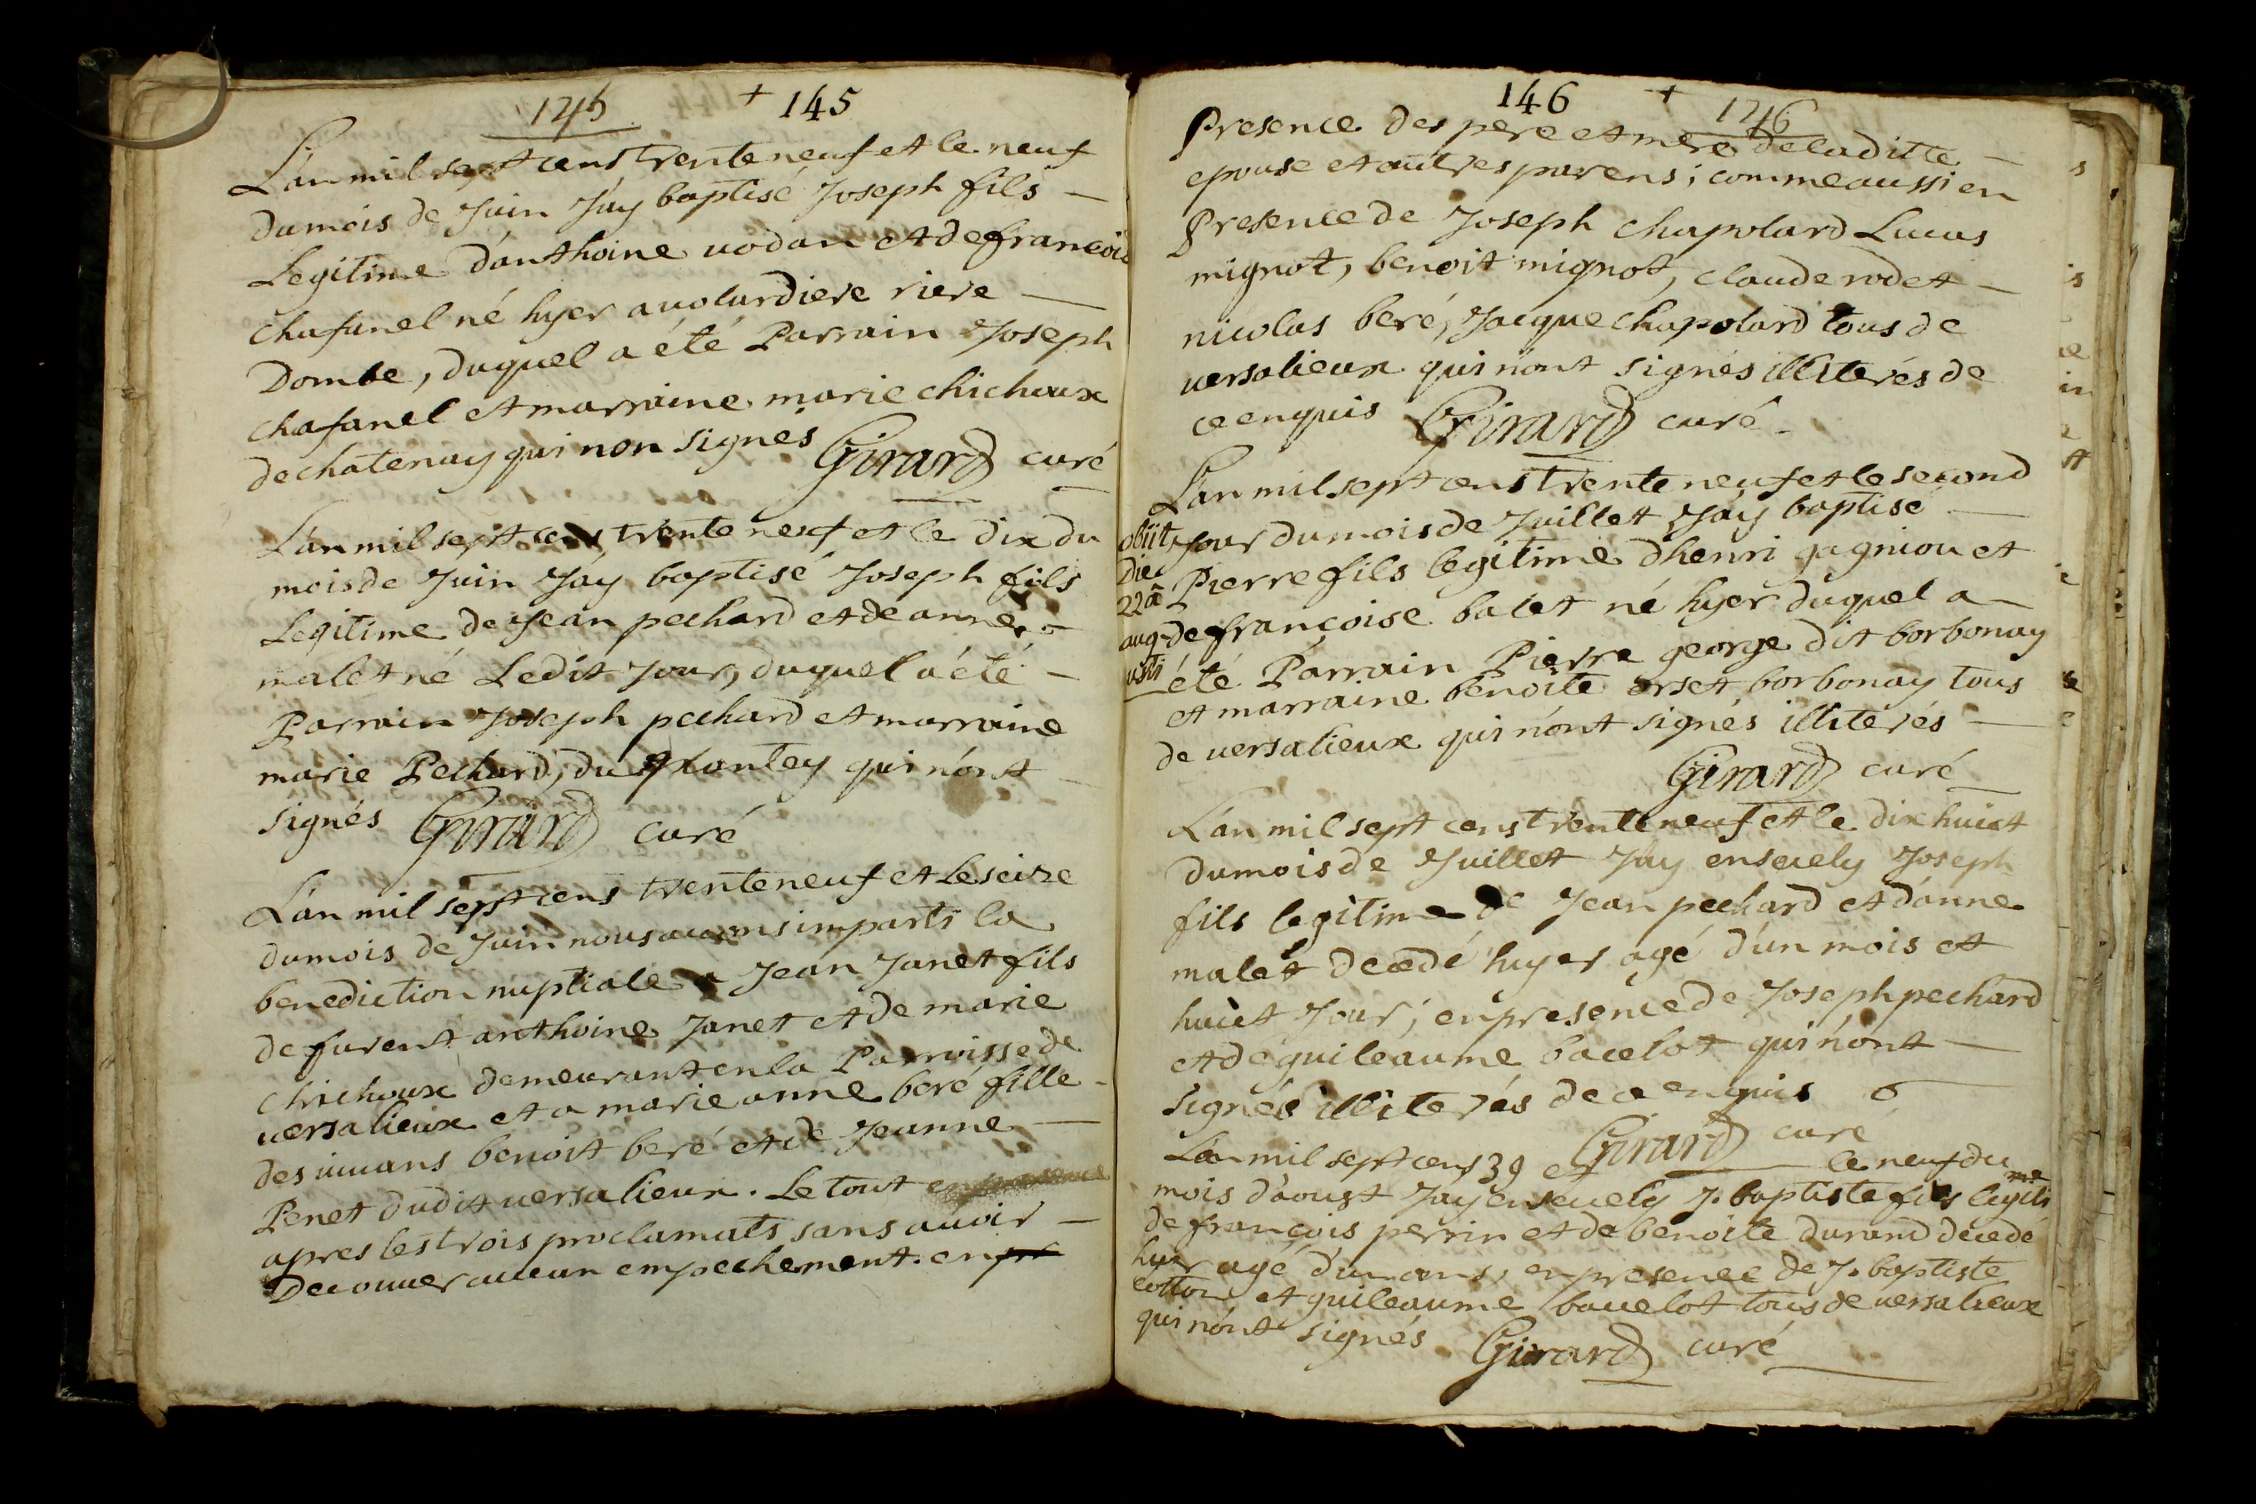 145 + 145
L'an mil sept cens trente neuf et le neuf
du mois de Juin J'ay baptisé Joseph fils —
Legitime d'anthoine vodan et de francois
chafanel né hyer a volardiere riere —
Dombe, duquel a été Parrain Joseph
chafanel et marraine marie chichoux
de chatenay qui non signes Girard curé
L'an mil sept cens trente neuf et le dix du
mois de Juin J'ay baptisé Joseph fils
Legitime de Jean pechard et de anne —
malet né Ledit Jour, duquel a été —
Parrain Joseph pechard et marraine
marie Pechard, du plantey qui n'ont
signés Girard curé
L'an mil sept cens trente neuf et le seize
du mois de Juin nous avons imparti la
benediction nuptiale a Jean Janet fils
de furent anthoine Janet et de marie
chichoux demeurant en la Parroisse de
versalieux et a marie anne beré fille
des vivans benoit beré et de Jeanne —
Penet dudit versalieux. Le tout en presence
apres les trois proclamats sans avoir —
Decouver aucun empechement. en pr
146 + 146
Presence des pere et mere de la ditte —
epouse et autres parens; comme aussi en
Presence de Joseph chapolard Lucas
mignot, benoit mignot, claude rodet —
nicolas beré, Jacque chapolard tous de
versalieux qui n'ont signés illiterés de
ce enquis Girard curé
L'an mil sept cens trente neuf et le second
Jour du mois de Juillet J'ay baptisé —
obiit
die
22a
aug-
usti
Pierre fils legitime d'henri gagniou et
de françoise balet né hyer duquel a —
été Parrain Pierre george dit borbonay
et marraine benoite orset borbonay tous
de versalieux qui n'ont signés illiterés —
Girard curé
L'an mil sept cens trente neuf et le dix huict
du mois de Juillet J'ay ensevely Joseph
fils legitime de Jean pechard et d'anne
malet decedé hyer agé d'un mois et
huict Jour, en presence de Joseph pechard
et de guileaume bacelot qui n'ont —
signés illiterés de ce enquis
Girard curé
L'an mil sept cens 39 et le neuf du
mois d'aoust J'ay ensevely J. baptiste fils legiti me
de françois perrin et de benoite durand decedé
hyer agé d'un ans, en presence de J. baptiste
cotton et guileaume bacelot tous de versalieux
qui n'ont signés Girard curé